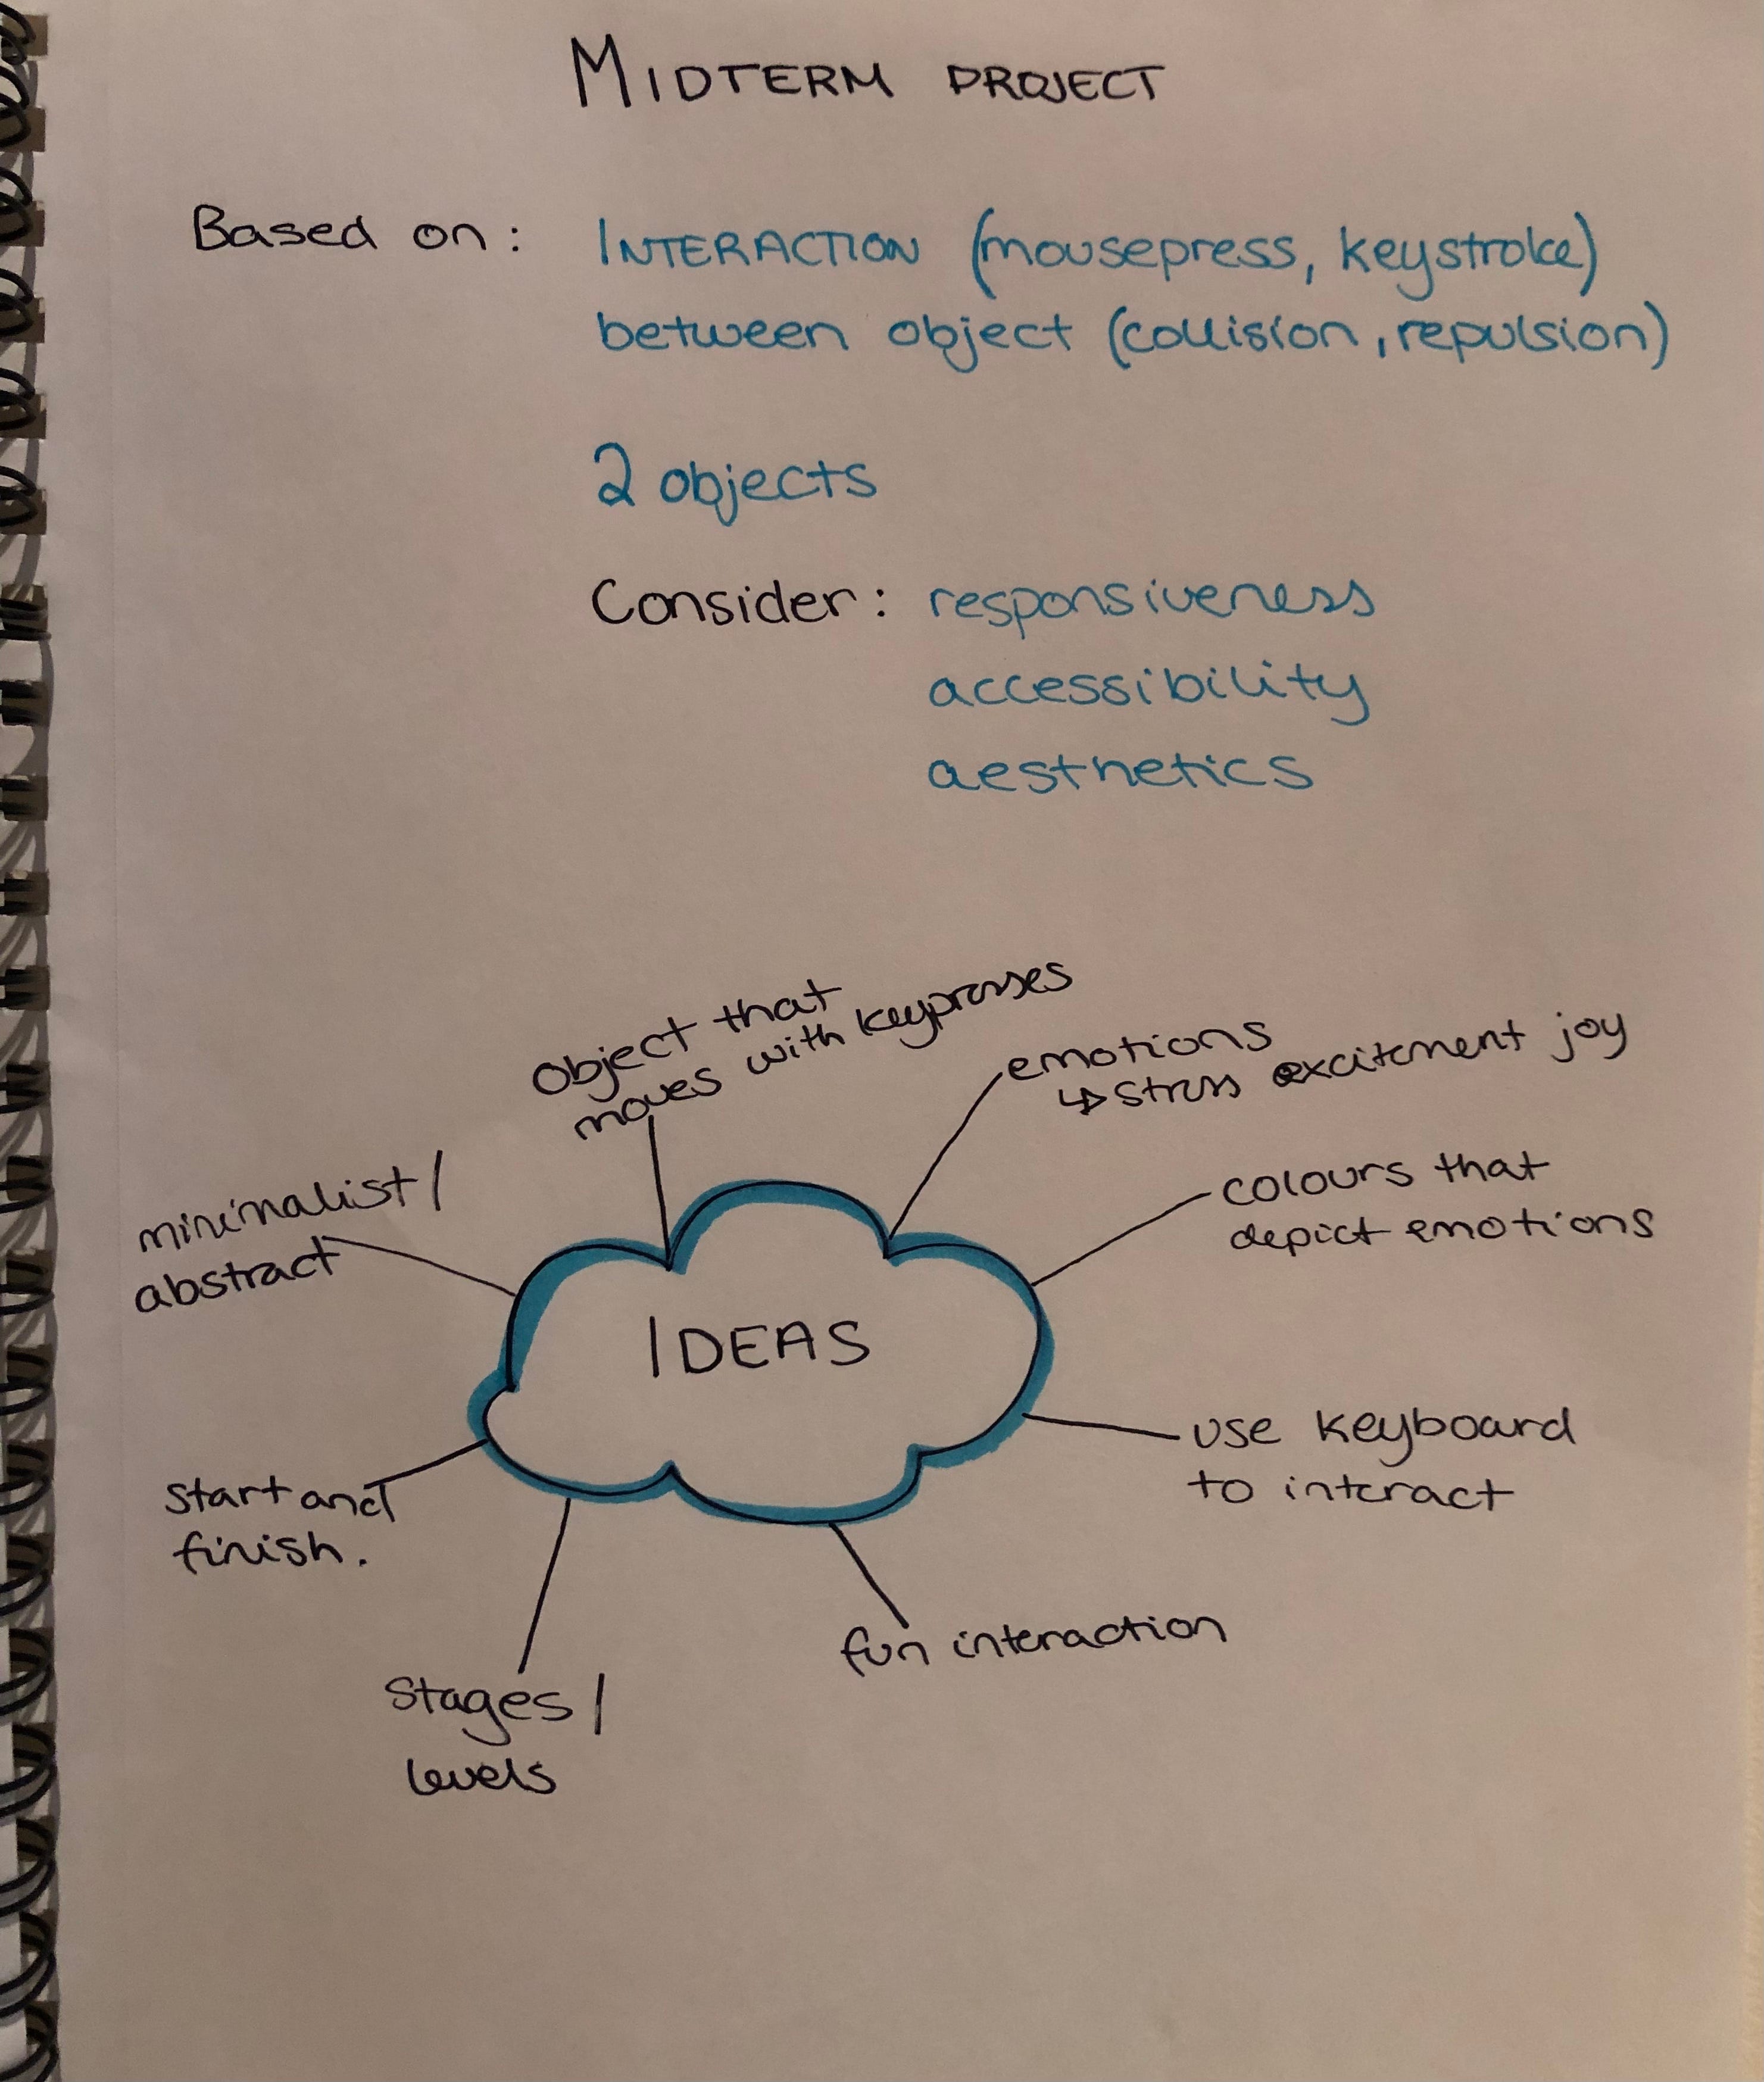 MIDTERM PROJECT
Based on: INTERACTION (mousepress, keystroke)
between object (collision, repulsion)
2 objects
Consider: responsiveness
accessibility
aesthetics
Object that
moves with keypresses
emotions
↳ stress excitement joy
colours that
depict emotions
minimalist/
abstract
IDEAS
use keyboard
to interact
start and
finish.
fun interaction
stages/
levels